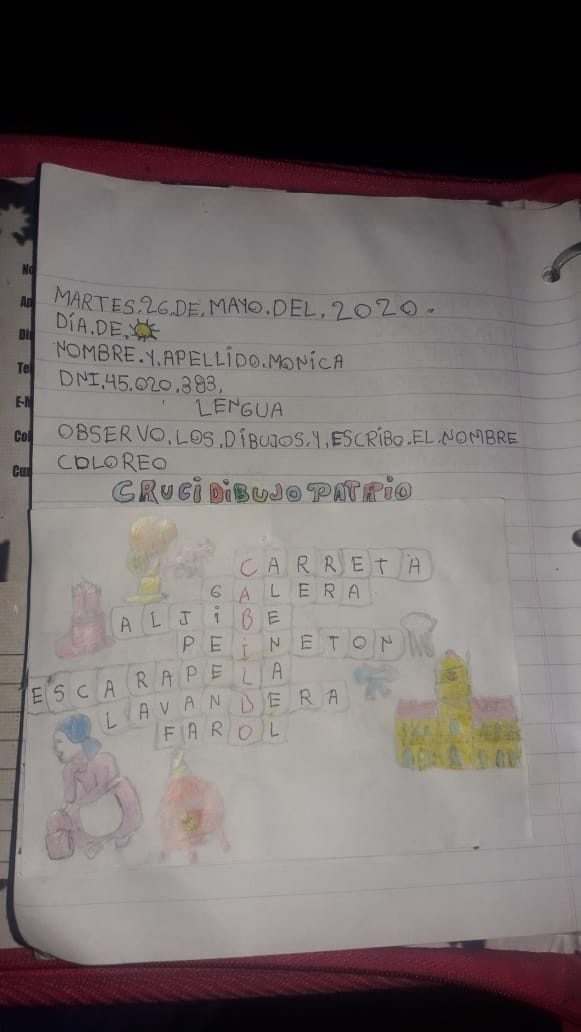 MARTES.26.DE.MAYO.DEL.2020.
DÍA.DE.
NOMBRE.Y.APELLIDO.MONICA
DNI.45.020.383.
LENGUA
OBSERVO.LOS.DIBUJOS.Y.ESCRIBO.EL.NOMBRE
COLOREO
CRUCI DIBUJO PATRIO
CARRETA
GALERA
ALJIBE
PEINETON
ESCARAPELA
LAVANDERA
FAROL
No
Ap
Di
Tel
E-M
Col
Cur